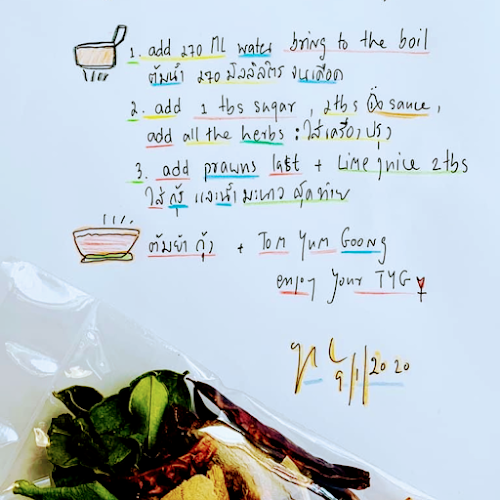 1. add 270 ML water bring to the boil
ต้มน้ำ 270 มิลลิลิตร จนเดือด
2. add 1 tbs sugar, 2tbs sauce,
add all the herbs : ใส่เครื่องปรุง
3. add prawns last + Lime juice 2tbs
ใส่กุ้ง และน้ำมะนาว สุดท้าย
ต้มยำกุ้ง + Tom Yum Goong
enjoy your TYG
9/1/2020